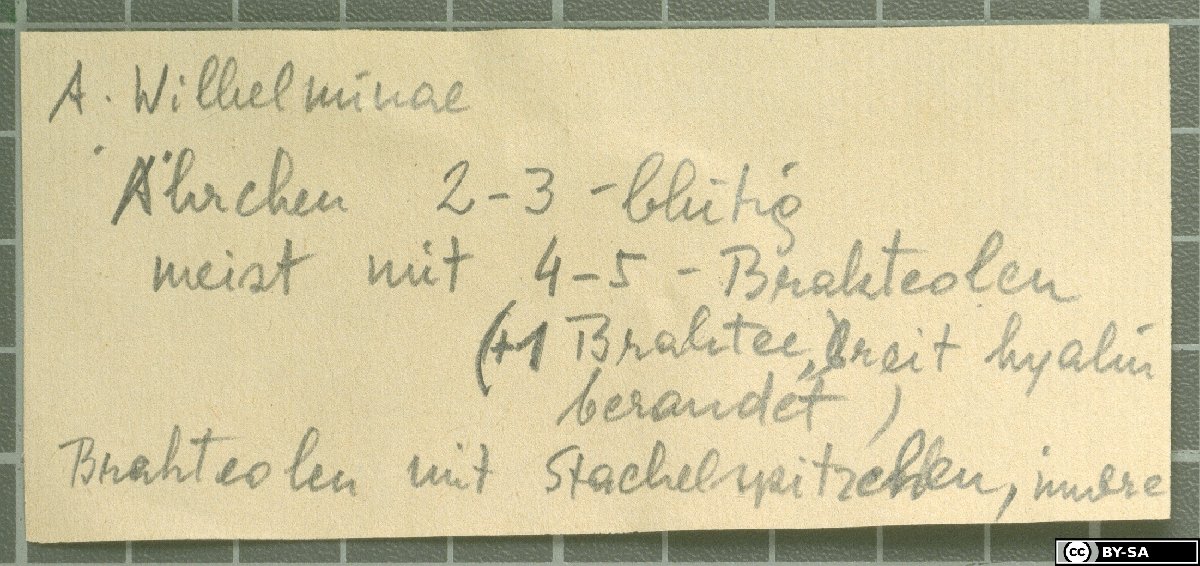 A. Wilhelminae
Ährchen 2-3-blütig
meist mit 4-5 - Brakteolen
(+1 Braktee, breit hyalin
berandet)
Brakteolen mit Stachelspitzchen, innere
cc BY-SA